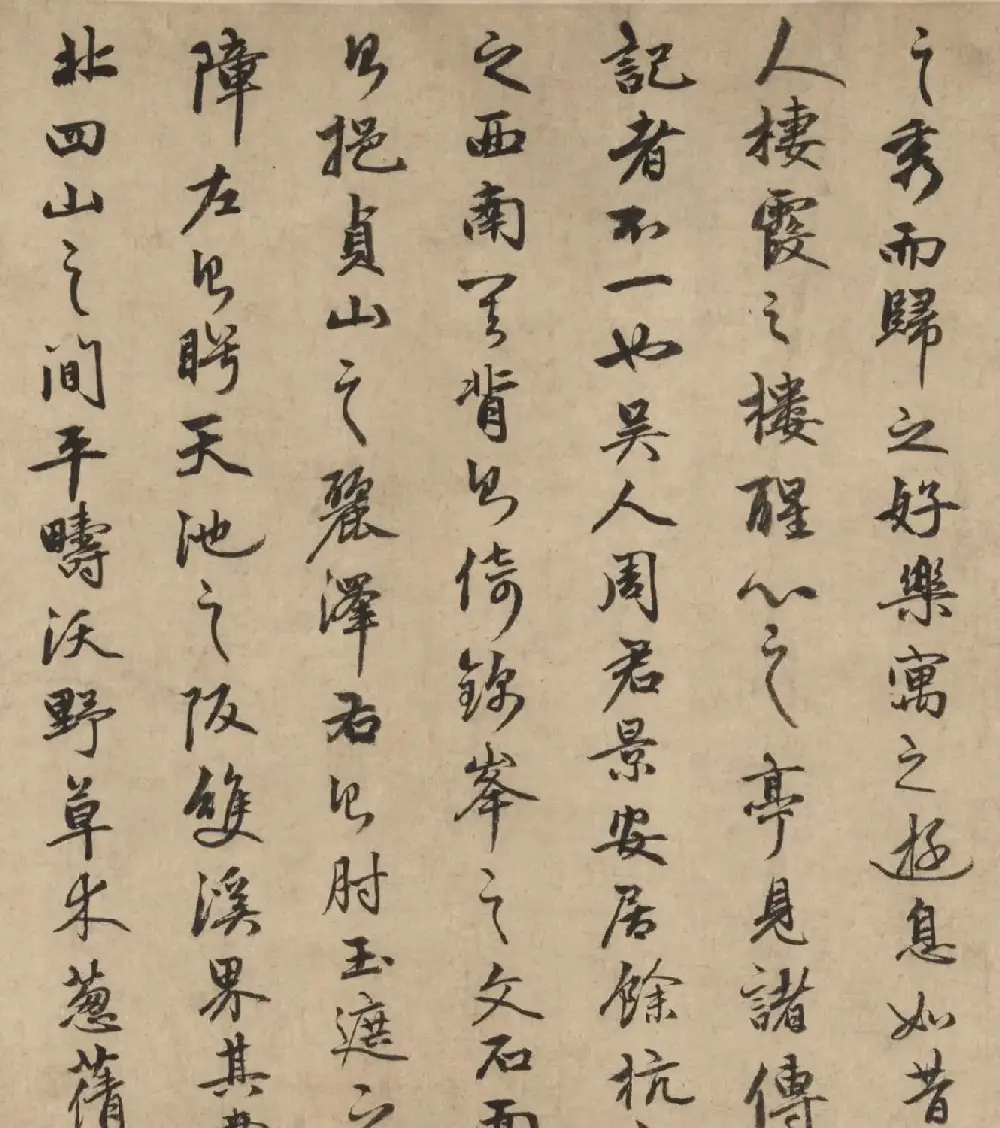 之秀而歸之好樂寓之遊息如昔
人棲霞之樓醒心之亭見諸傳
記者不一也吳人周君景安居餘杭
之西南背以倚錦峯之文石面
以挹貞山之麗澤右以肘玉遮之
障左以盻天池之阪雙溪界其
北四山之間平疇沃野草木葱蒨